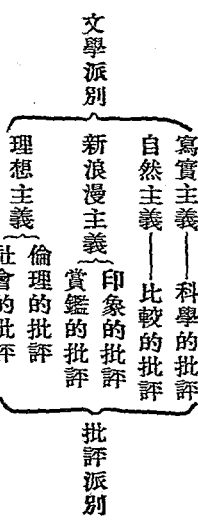 文學派別
寫實主義——科學的批評
自然主義——比較的批評
新浪漫主義
印象的批評
賞鑑的批評
理想主義
倫理的批評
社會的批評
批評派別